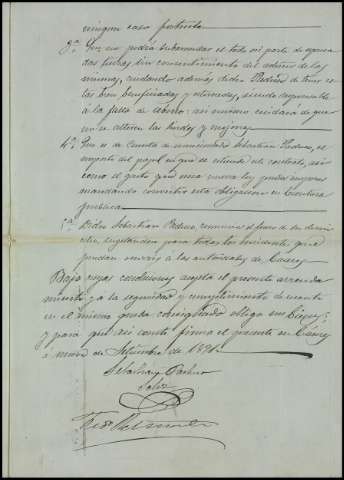 ningun caso
3ª Que no podrá subarrendar el todo ni parte de
das tierras sin consentimiento del dueño de las
mismas, cuidando además dicho Pedrero de tener
las bien beneficiadas y
á la falta de abono: asi mismo cuidará de que
no se alteren las lindes y mojones
4ª Que es de cuenta de mencionado Sebastian Pedrero, el
importe del papel en que se estienda este contrato, asi
como el gasto que una nueva ley pueda
mandando convertir esta obligacion en Escritura
publica
5ª Dicho Sebastian Pedrero, renuncia el fuero de su domi
cilio, sugetandose para todos los incidentes que
puedan ocurrir á las autoridades de
Bajo cuyas condiciones acepta el presente arrenda
miento, y á la seguridad y cumplimiento de cuanto
en el mismo queda consignado obligo mis bienes;
y para que asi conste firmo el presente en
á de Setiembre de
Sebastian Pedrero